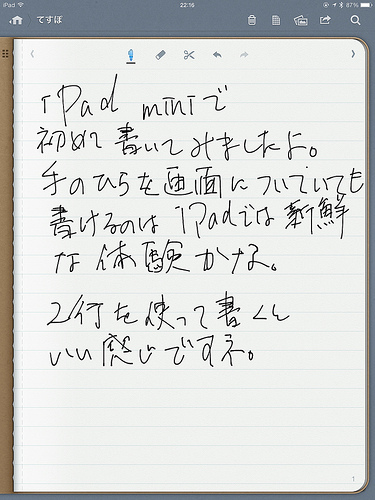 iPad
22:16
87%
てすぽ
iPad miniで
初めて書いてみましたよ。
手のひらを画面についていても
書けるのは iPadでは新鮮
な体験かな。
2行を使って書くと
いい感じですネ。
1